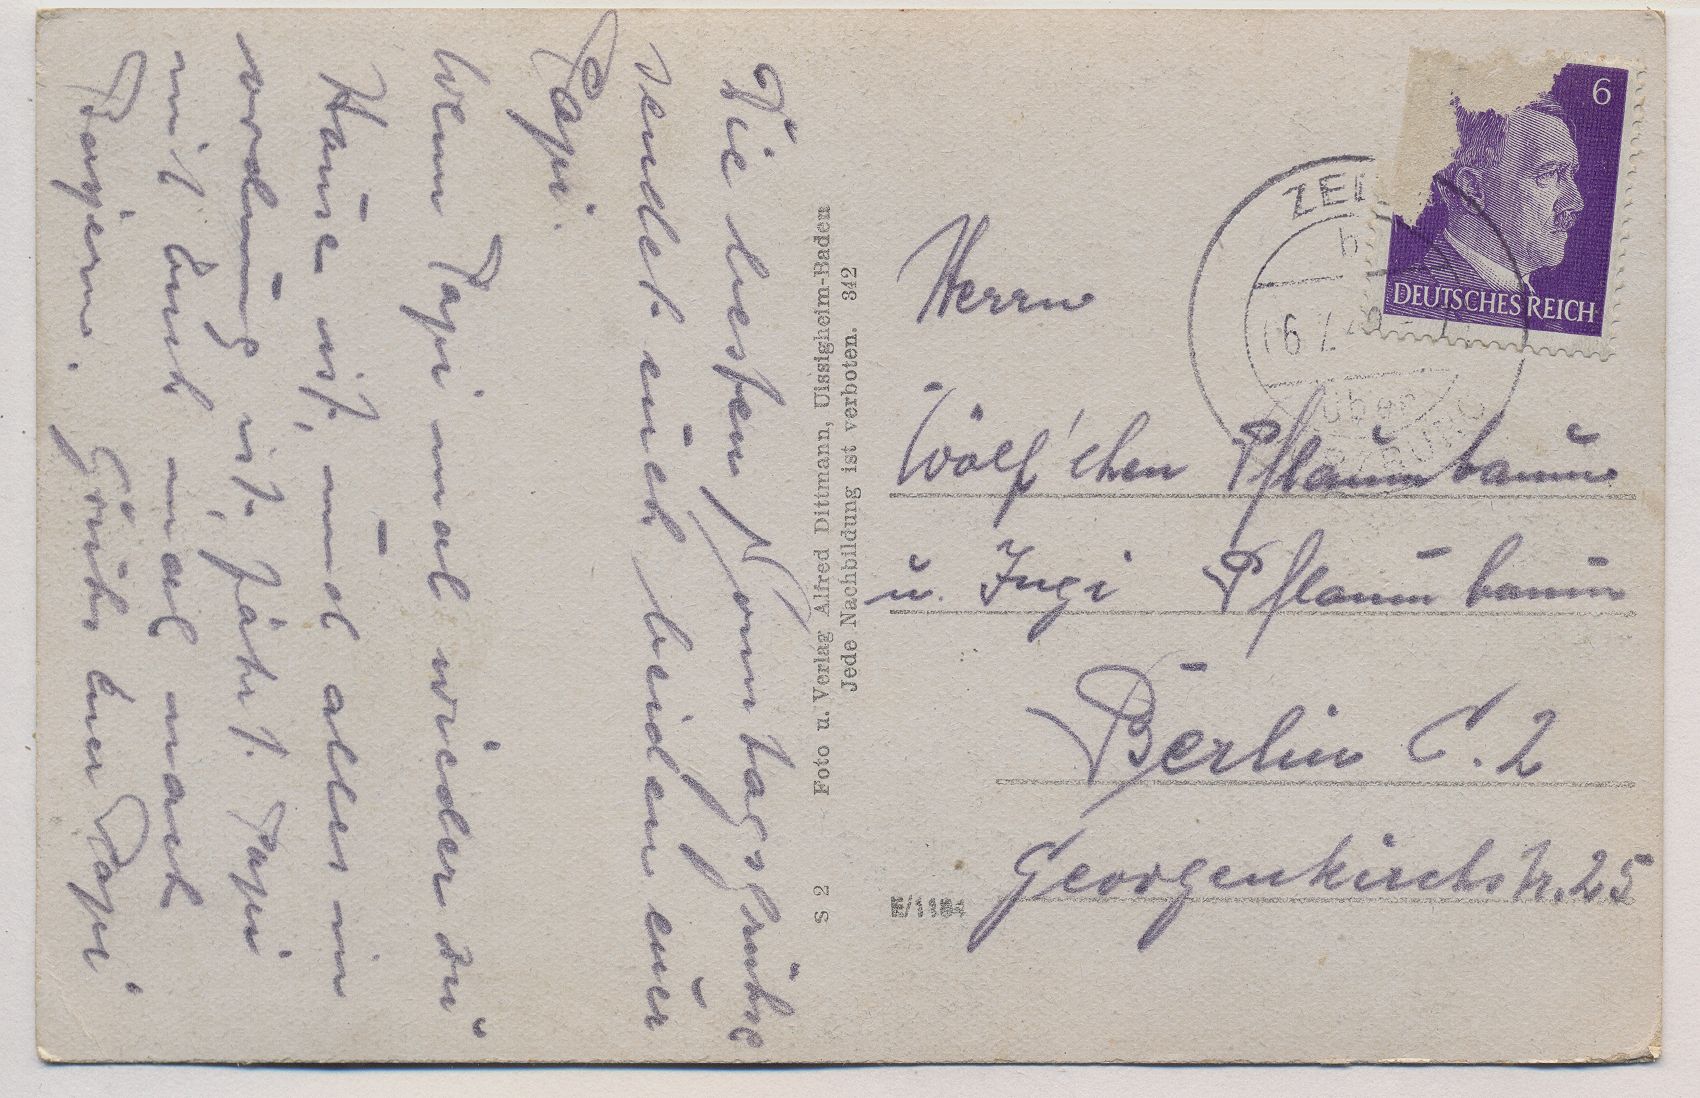 Die besten Sonntagsgrüße
sendet euch beiden euer
Papi.
Wenn Papi mal wieder zu
Hause ist, und alles in
ordnung ist, fährt Papi
mit Euch mal nach
Bayern.
Grüße Euer Papi
S 2 Foto u. Verlag Alfred Dittmann, Uissigheim-Baden
Jede Nachbildung ist verboten. 342
6
DEUTSCHES REICH
über
Herrn
Wölf'chen Pflaumbaum
u. Ingi Pflaumbaum
Berlin C. 2
Georgenkirchstr. 25
E/1184